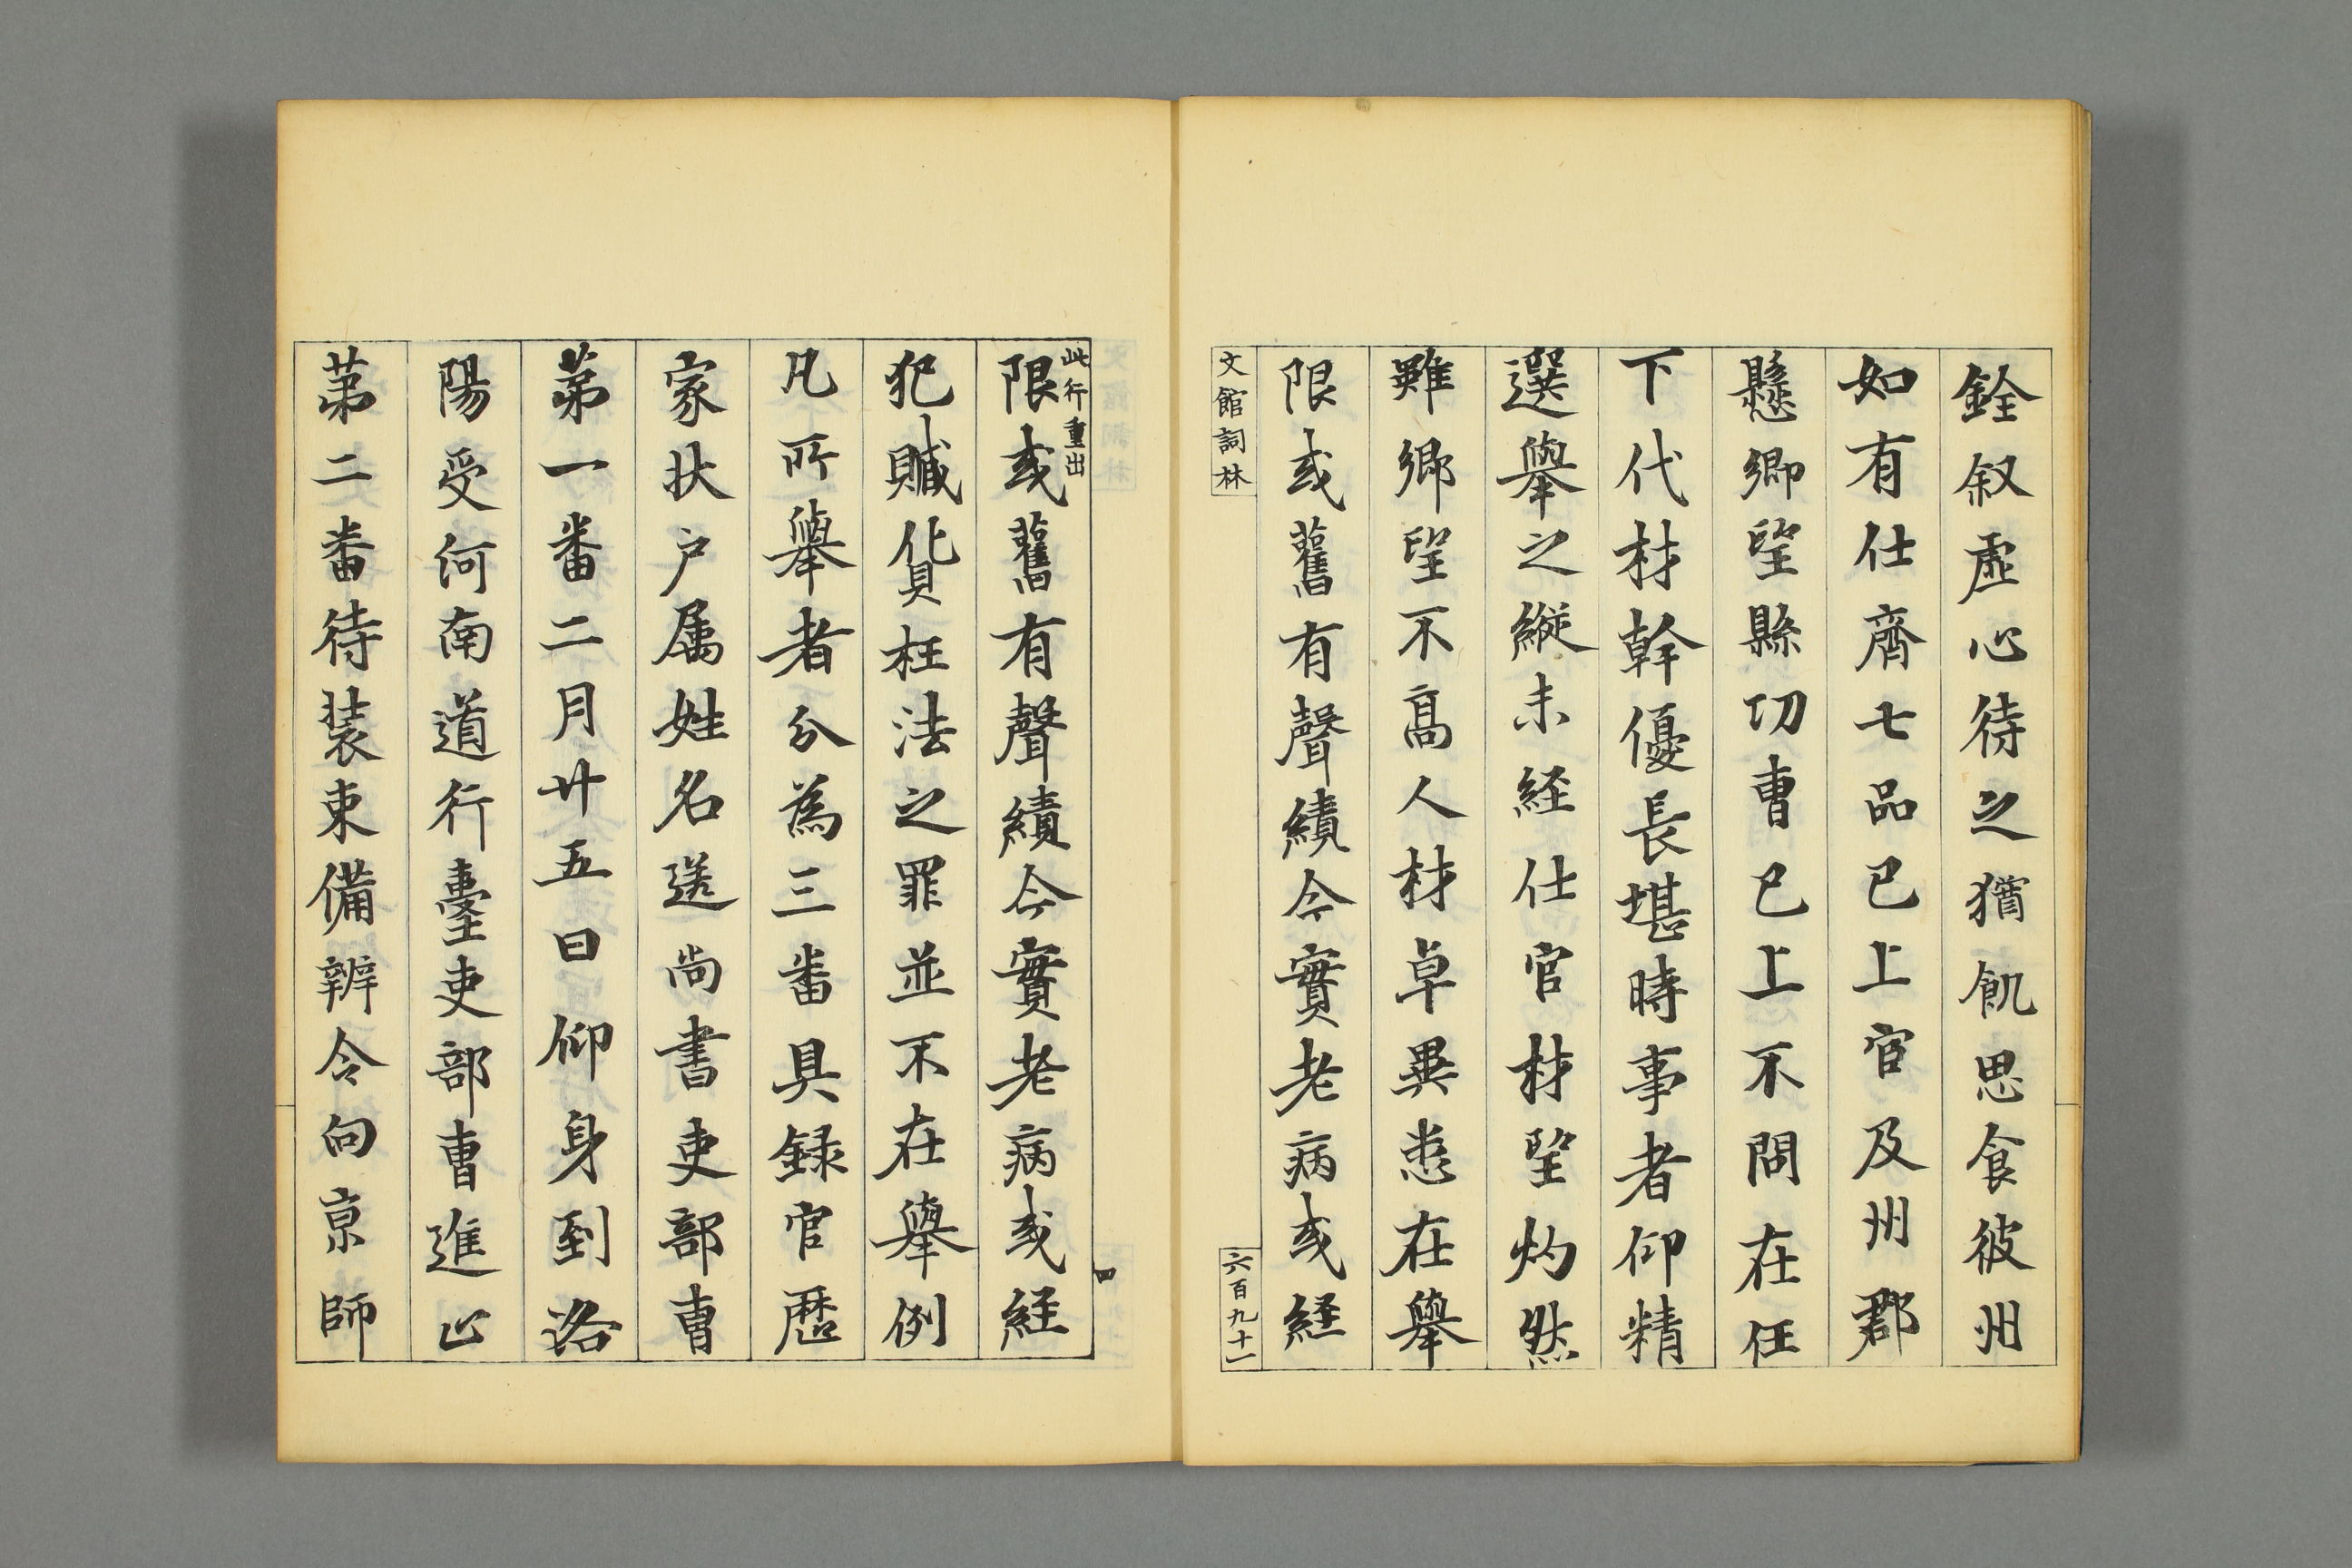 銓叙虛心待之猶飢思食彼州
如有仕齊七品已上官及州郡
懸鄉望縣功曹已上不問在任
下代材幹優長堪時事者仰精
選舉之縱未經仕官材望灼然
雖鄉望不高人材卓異悉在舉
限或舊有聲績今實老病或経
文館詞林
六百九十一
此行重出
限或舊有聲績今實老病或経
犯贓貨枉法之罪並不在舉例
凡所舉者分為三番具録官歷
家狀户属姓名送尚書吏部曹
苐一番二月廿五日仰身到洛
陽受河南道行臺吏部曹進止
苐二番待裝束備辨令向京師
四